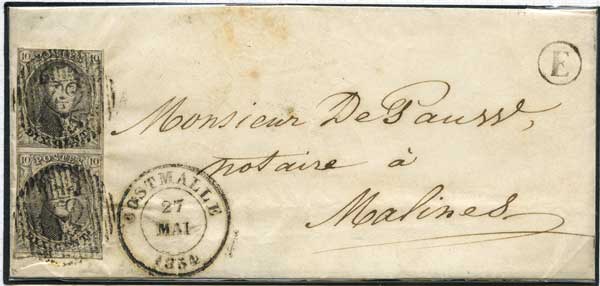 10 POSTES 10
E
Monsieur De Pauw,
notaire à
Malines
10 POSTES 10
OOSTMALLE
27
MAI
1854